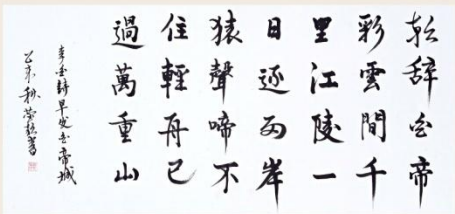 朝辞白帝
彩雲間千
里江陵一
日還两岸
猿聲啼不
住輕舟已
過萬重山
李白詩早发白帝城
乙未秋書